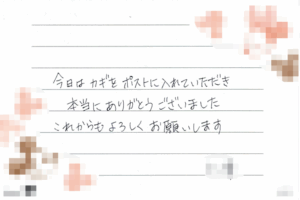 今日は カギを ポストに入れていただき
本当に ありがとう ございました
これからも よろしく お願いします